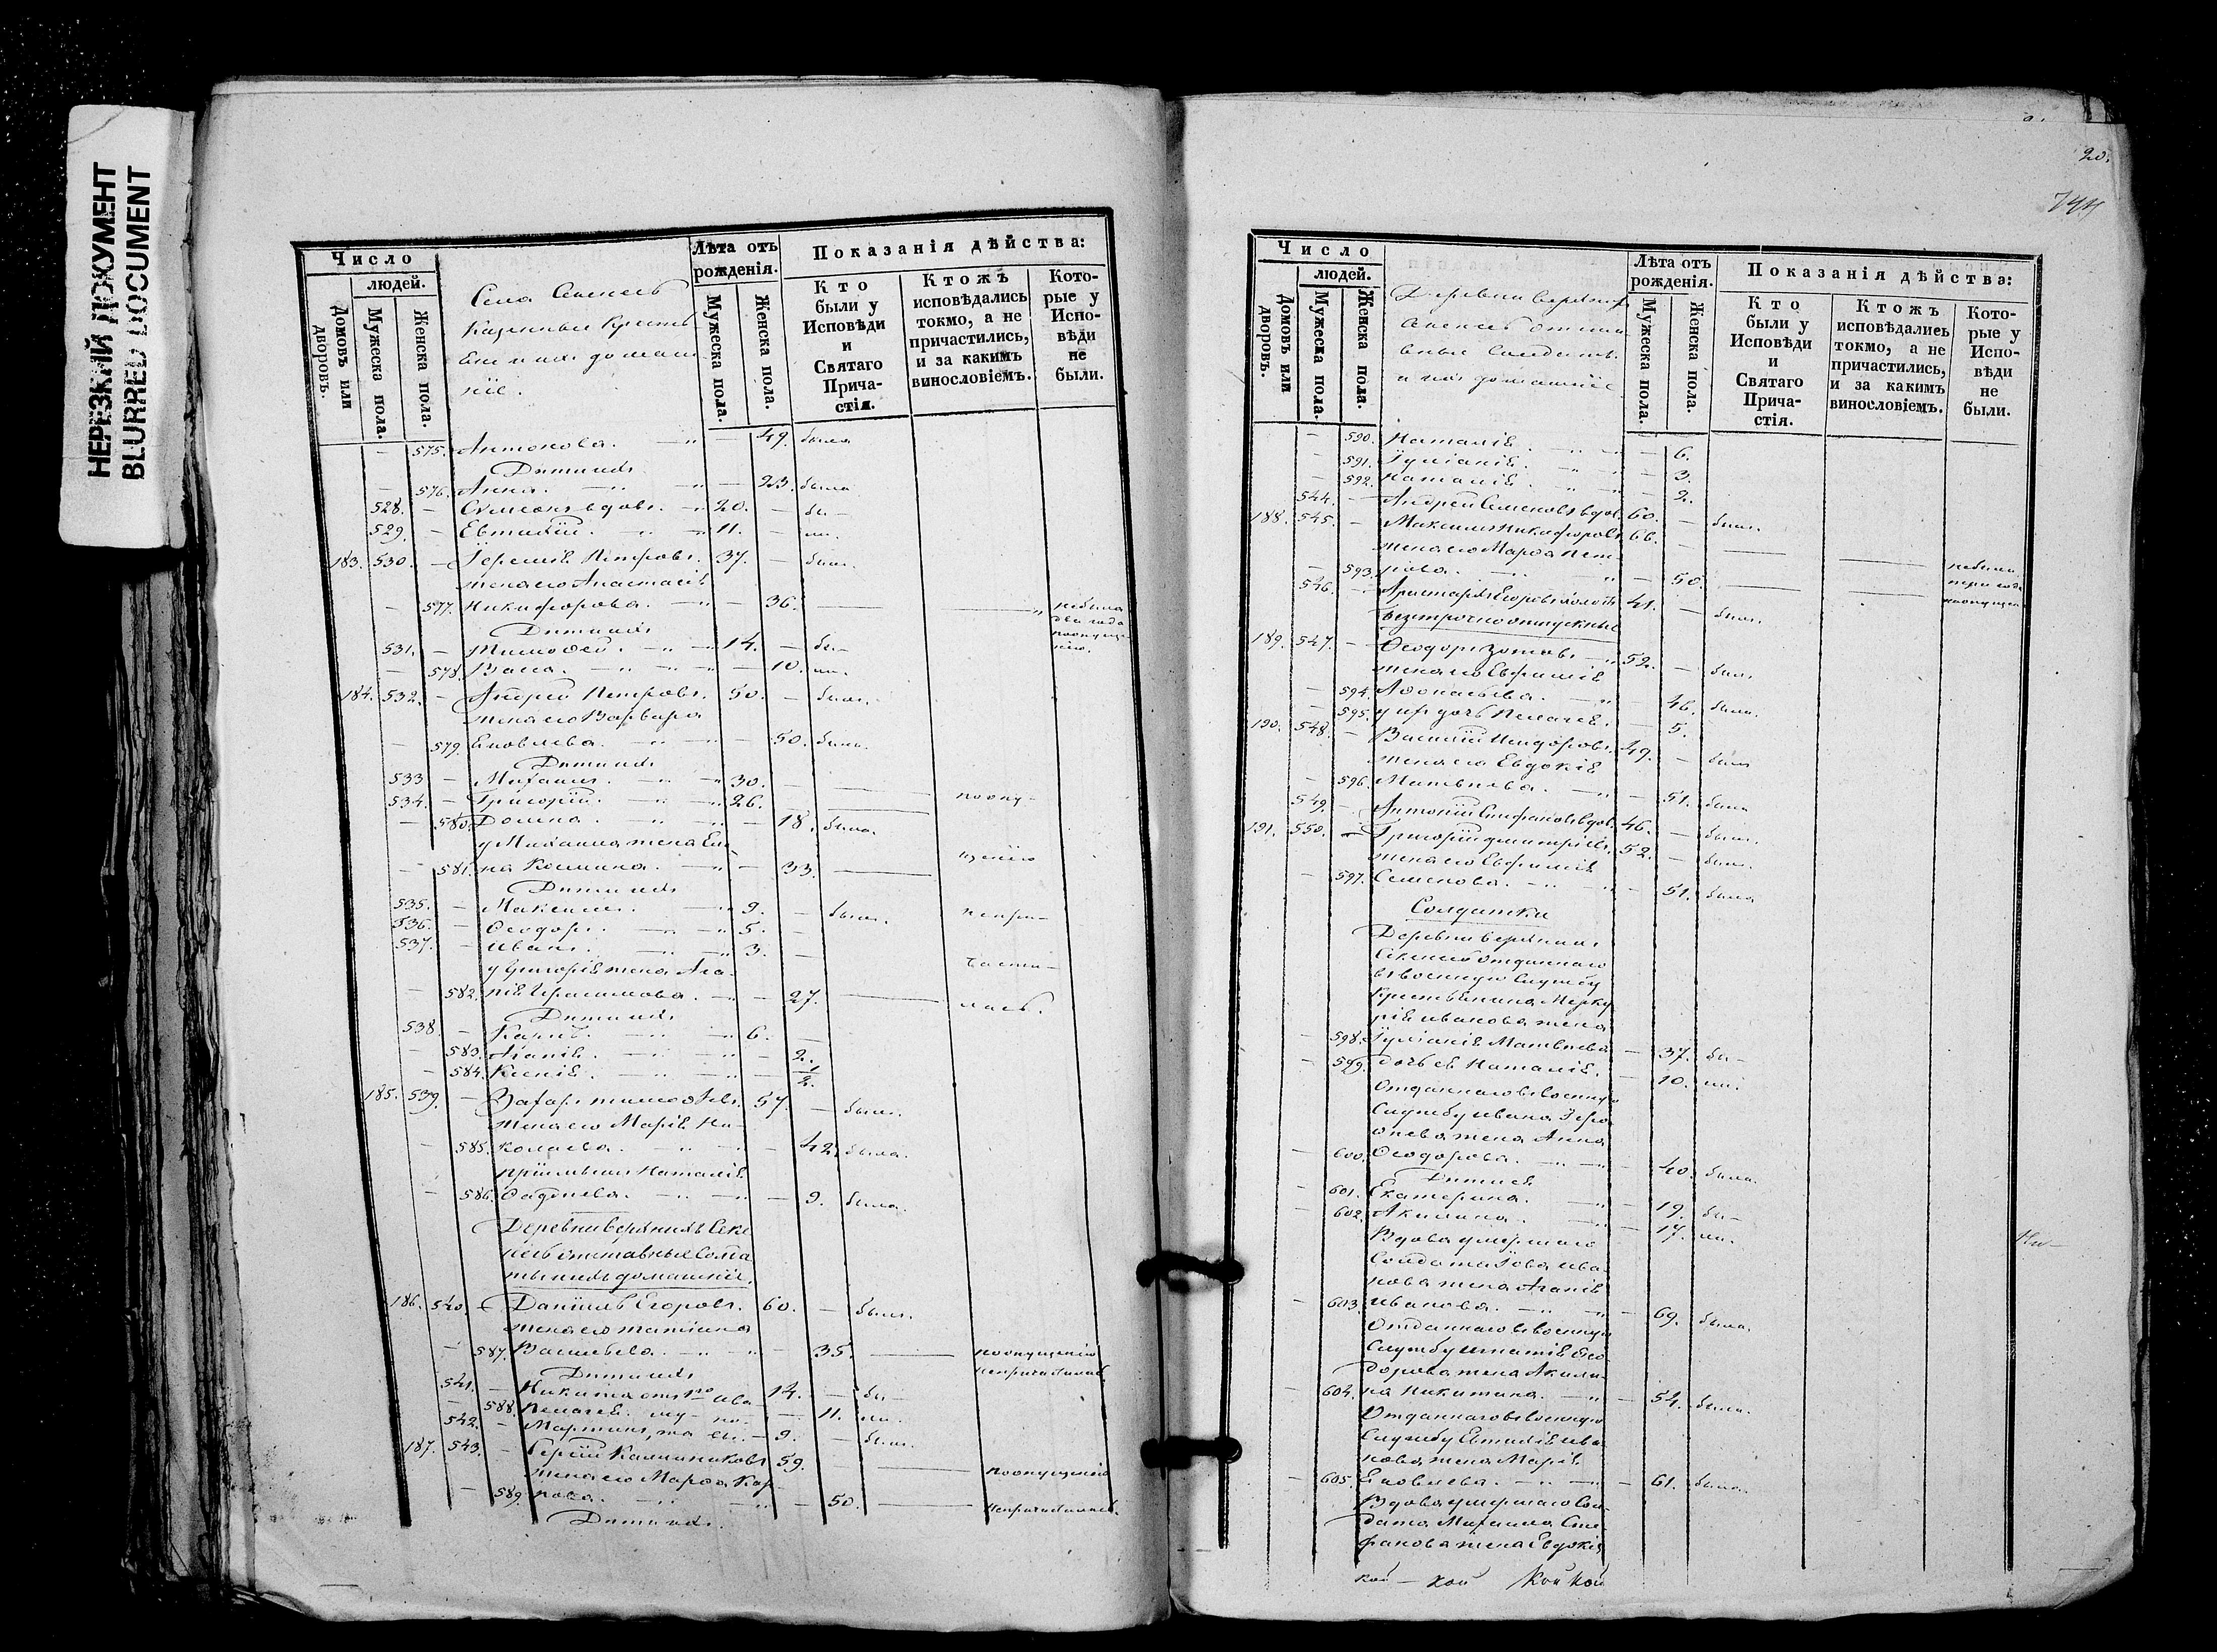 НЕРЕЗКИЙ ДОКУМЕНТ
BLURRED DOCUMENT
Число
людей.
Домовъ или дворовъ.
Мужеска пола.
Женска пола.
Села
Казенные
ихъ домаш
ніе.
Лѣта отъ рожденія.
Мужеска пола.
Женска пола.
Показанія дѣйства:
Кто были у Исповѣди и Святаго Причастія.
Ктожъ исповѣдались токмо, а не причастились, и за какимъ винословіемъ.
Которые у Исповѣди не были.
575. Антонова. 49. была
Дѣти ихъ
576. Анна. 23. была
528. вдовъ. 20. бы-
529. Евтихій. 11. ли.
183. 530. Іеремія Петровъ. 37. былъ.
жена его Анастасія
577. Никифорова. 36. небыла
два года
Дѣти ихъ
531. Тимофей. 14. бы-
578. Васса. 10. ли.
184. 532. Андрей Петровъ. 50. былъ.
жена его Варвара
579. Яковлева. 50. была.
Дѣти ихъ
533 Михаилъ. 30.
534. Григорій. 26. поопу-
580. Домна. 18. была.
у Михаила жена Еле-
щенію
581. на Космина. 33.
Дѣти ихъ
535. Максимъ. 9. былъ. непри-
536. Ѳеодоръ. 5.
537. Иванъ. 3.
у Григорія жена Ага- части-
582. пія Герасимова. 27. лась.
Дѣти ихъ
538 Карпъ. 6.
583. Агапія. 2.
584. Ксенія. 1/2.
185. 539. Захаръ Тимоѳеевъ. 57. былъ.
жена его Марія Ни-
585. колаева. 42. была.
пріемышъ Наталія
586. Фадѣева. 9. была.
Деревни Верхнихъ Секе
несь отставные Солда
ты и ихъ домашніе.
186. 540. Даніилъ Егоровъ. 60. былъ.
жена его Татіана
587. Васильева. 35. поопущенію
непричастилась
Дѣти ихъ
541. Никита отъ 1го 14. бы-
588. Пелагея. 11. ли.
542. Мартинъ, 9. былъ.
187. 543. Сергій Калинниковъ 59. поопущенію
жена его Марѳа Кар-
589. пова. 50. непричастились.
Дѣти ихъ.
20.
744
Число
людей.
Домовъ или дворовъ.
Мужеска пола.
Женска пола.
Деревни Верхнихъ
Секенесь отста
вные Солдаты
и ихъ домашніе
Лѣта отъ рожденія.
Мужеска пола.
Женска пола.
Показанія дѣйства:
Кто были у Исповѣди и Святаго Причастія.
Ктожъ исповѣдались токмо, а не причастились, и за какимъ винословіемъ.
Которые у Исповѣди не были.
590. Наталія. 6.
591. Іуліанія. 3.
592. Наталія. 2.
544. Андрей Семеновъ вдов. 60. былъ.
188. 545. Максимъ Никифоровъ 66.
жена его Марѳа Пет- небыли
593. рова. 50. поопущен
546. Аристархъ Егоровъ холостъ 41. былъ.
Безсрочноотпускные
189. 547. Ѳеодоръ Зотовъ 52. былъ
жена его Евфимія
594. Аѳонасьева. 46. была.
595. у ихъ дочь Пелагея. 5.
190. 548. Василій Исидоровъ. 49. былъ
жена его Евдокія
596. Матвѣева. 51. была
549. Антоній Епифановъ вдов. 46. былъ.
191. 550. Григорій Димитріевъ. 52. былъ.
жена его Евфимія
597. Семенова. 51. была
Солдатки
Деревни Верхнихъ
Секенесь отданнаго
въ военную Службу
крестьянина Мерку
рія Иванова жена
598. Іуліанія Матвѣева 37. бы-
599. дочь ея Наталія. 10. ли.
Отданнаго въ военную
Службу Ивана Іеро
ѳеева жена Анна
600. Ѳеодорова. 40. была.
Дѣти ея
601. Екатерина. 19. бы-
602. Акилина. 17. ли.
Вдова умершаго
Солдата Іова Ива
нова жена Агапія
603. Иванова. 69. была.
Отданнаго въ военную
Службу Игнатія Ѳео-
дорова жена Акили-
604. на Никитина. 54. была.
Отданнаго въ военную
Службу Евтихія Ива
нова жена Марія
605. Яковлева. 61. была.
Вдова умершаго Сол-
дата Михаила Сте-
фанова жена Евдокія